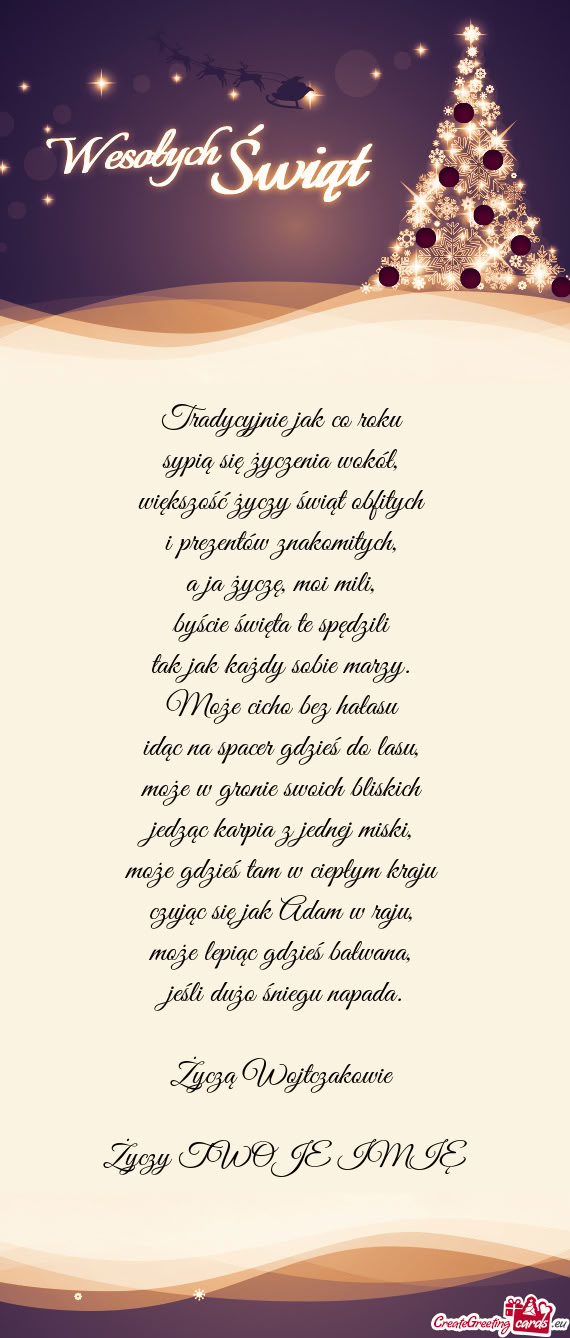 Wesołych Świąt
Tradycyjnie jak co roku
sypią się życzenia wokół,
większość życzy świąt obfitych
i prezentów znakomitych,
a ja życzę, moi mili,
byście święta te spędzili
tak jak każdy sobie marzy.
Może cicho bez hałasu
idąc na spacer gdzieś do lasu,
może w gronie swoich bliskich
jedząc karpia z jednej miski,
może gdzieś tam w ciepłym kraju
czując się jak Adam w raju,
może lepiąc gdzieś bałwana,
jeśli dużo śniegu napada.
Życzą Wojtczakowie
Życzy TWOJE IMIĘ
CreateGreetingcards.eu